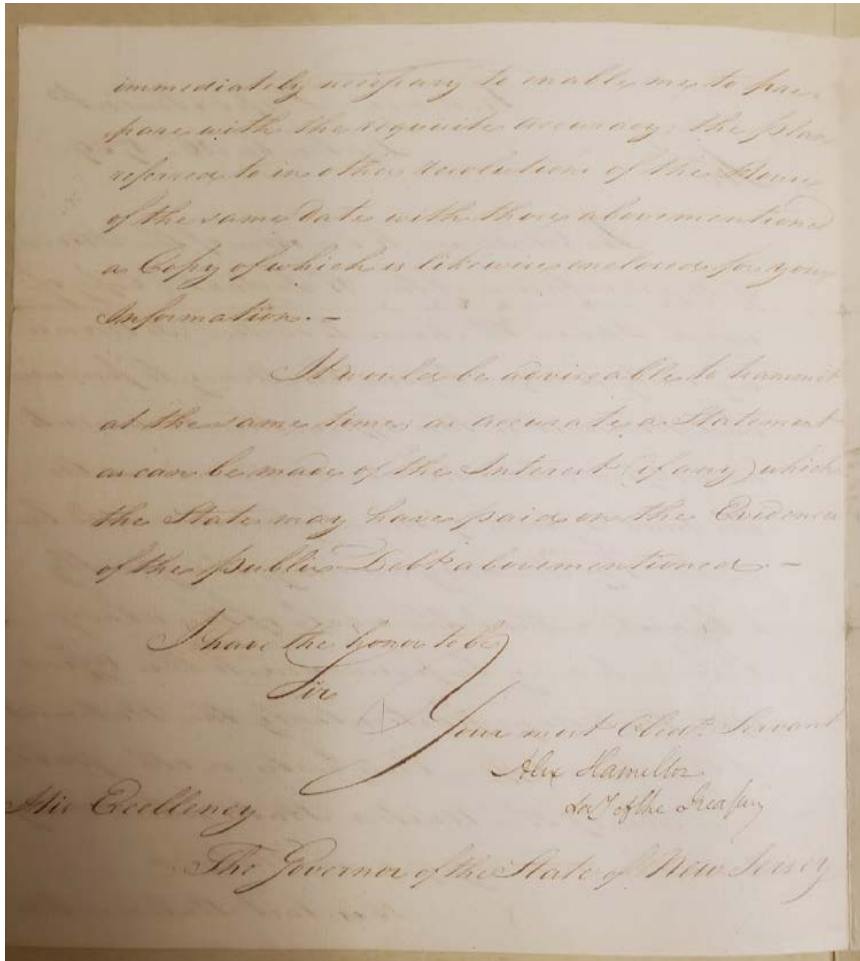 immediately necessary to enable me to pre-
pare with the requisite accuracy the plan
referred to in other Resolutions of the House
of the same date with those abovementioned
a Copy of which is likewise enclosed for your
Information. —
It would be adviseable to transmit
at the same time, as accurate a Statement
as can be made of the Interest (if any) which
the State may have paid on the Evidences
of the public Debt abovementioned. —
I have the honor to be
Sir
Your most Obedt. Servant
Alex Hamilton
Secy of the Treasury
His Excellency
The Governor of the State of New Jersey